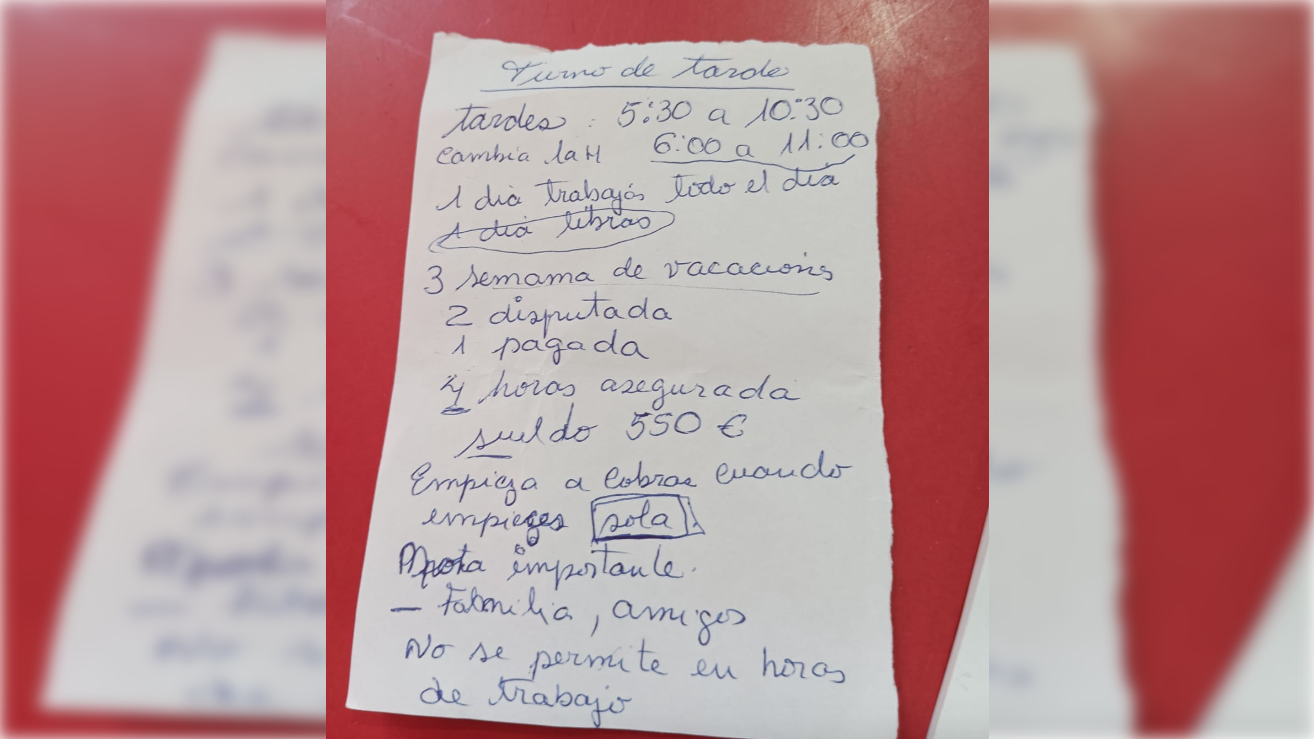 Turno de tarde
tardes : 5:30 a 10:30
cambia la H 6:00 a 11:00
1 dia trabajás todo el dia
1 dia libras
3 semama de vacacions
2 disputada
1 pagada
4 horas asegurada
sueldo 550 €
Empieza a cobras cuando
empieces sola
importante.
— Familia, amigos
No se permite en horas
de trabajo